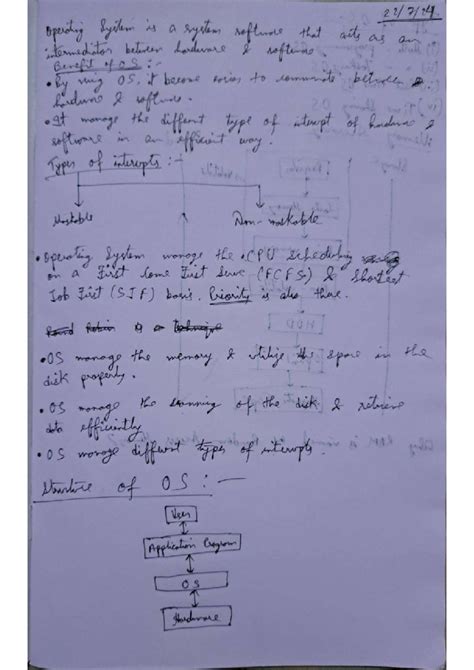 22/7/24
Operating System is a system software that acts as an
intermediator between hardware & software.
Benefit of OS :-
• By using OS, it become easier to communicate between
hardware & software.
• It manage the different type of interept of hardware &
software in an efficient way.
Types of interepts :-
Maskable Non-maskable
• Operating System manage the CPU scheduling
on a First Come First Serve (FCFS) & Shortest
Job First (SJF) basis. Priority is also there.
Round Robin is a Technique
• OS manage the memory & utilize the space in the
disk properly.
• OS manage the scanning of the disk & retrieve
data efficiently
• OS manage different types of interepts.
Structure of OS :-
User
Application Program
OS
Hardware